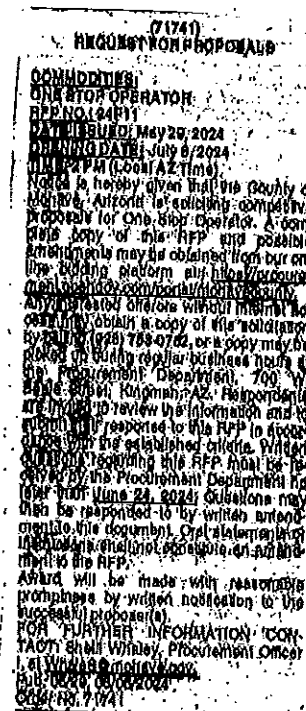 (71741)
REQUEST FOR PROPOSALS
COMMODITIES:
ONE STOP OPERATOR
RFP NO.: 24P11
DATE ISSUED: May 29, 2024
OPENING DATE: July 2024
TIME: 2 PM (Local AZ Time)
Notice is hereby given that the County of
Mohave, Arizona is soliciting competitive
proposals for One Stop Operator. A com-
plete copy of this RFP and possible
amendments may be obtained from our on-
line bidding platform at: https://procure
ment.opengov.com/portal/mohavecounty.
Any interested offerors without internet ac-
cess may obtain a copy of this solicitation
by calling (928) 753-0752, or a copy may be
picked up during regular business hours at
the Procurement Department, 700 W.
Street, Kingman, AZ. Respondents
are invited to review the information and to
submit their responses to this RFP in accor-
dance with the established criteria. Written
questions regarding this RFP must be re-
ceived by the Procurement Department no
later than June 24, 2024. Questions may
then be responded to by written amend-
ment to this document. Oral statements or
instructions shall not constitute an amend-
ment to the RFP.
Award will be made with reasonable
promptness by written notification to the
successful proposer(s).
FOR FURTHER INFORMATION CON-
TACT: Whaley, Procurement Officer
I, at @mohave.gov.
Pub. 2024
Order No. 71741